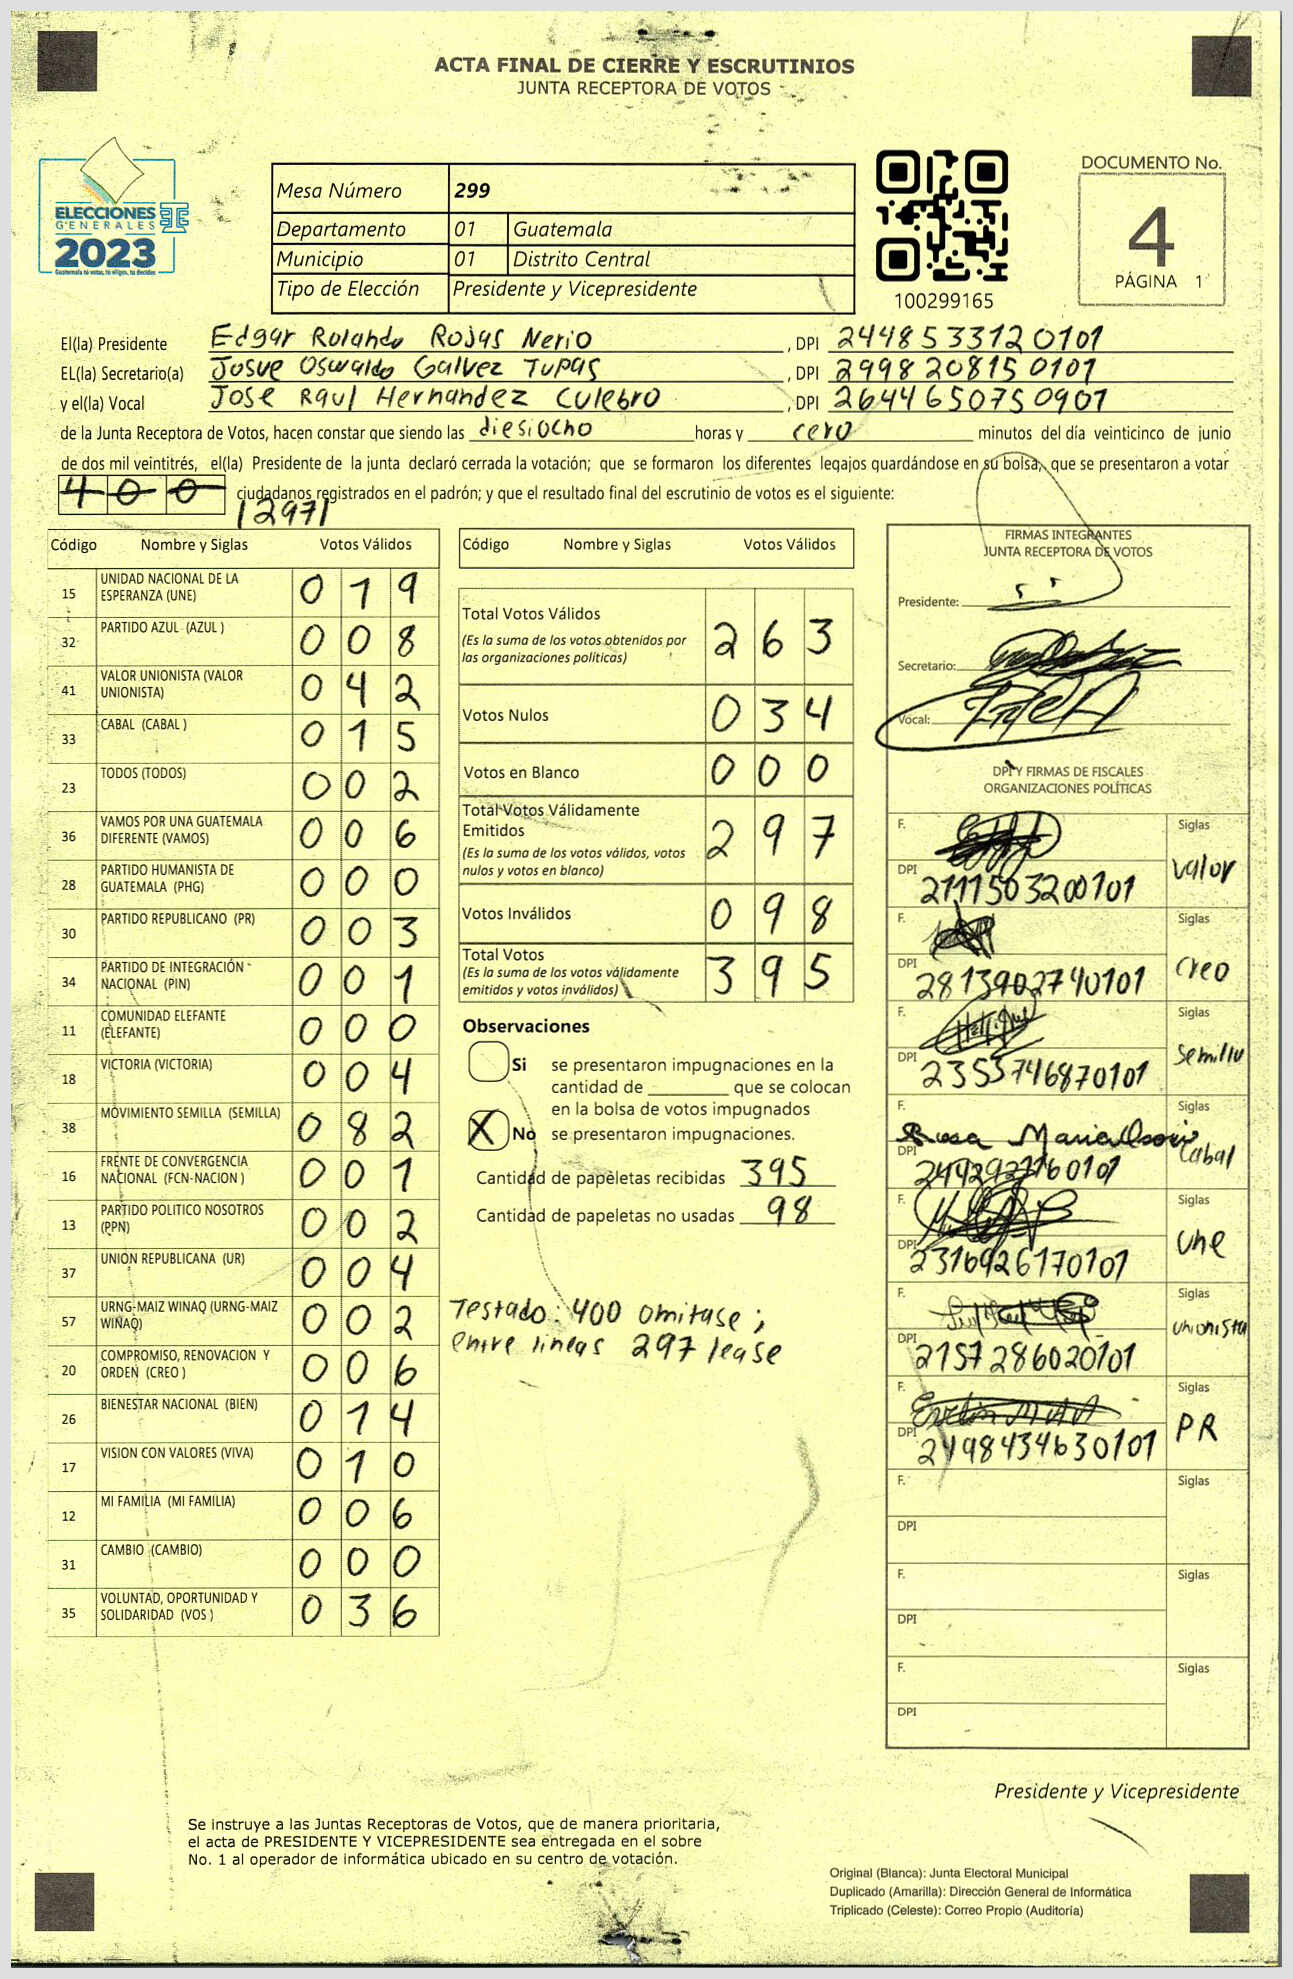 ACTA FINAL DE CIERRE Y ESCRUTINIOS
JUNTA RECEPTORA DE VOTOS
ELECCIONES
GENERALES
2023
Guatemala tú votas, tú eliges, tú decides
Mesa Número 299
Departamento 01 Guatemala
Municipio 01 Distrito Central
Tipo de Elección Presidente y Vicepresidente
100299165
DOCUMENTO No.
4
PÁGINA 1
El(la) Presidente Edgar Rolando Rojas Nerio , DPI 2448533120101
EL(la) Secretario(a) Josue Oswaldo Galvez Tupas , DPI 2998208150101
y el(la) Vocal Jose Raul Hernandez Culebro , DPI 2644650750901
de la Junta Receptora de Votos, hacen constar que siendo las diesiocho horas y cero minutos del día veinticinco de junio
de dos mil veintitrés, el(la) Presidente de la junta declaró cerrada la votación; que se formaron los diferentes legajos guardándose en su bolsa, que se presentaron a votar
400 ciudadanos registrados en el padrón; y que el resultado final del escrutinio de votos es el siguiente:
|297|
Código Nombre y Siglas Votos Válidos
15 UNIDAD NACIONAL DE LA ESPERANZA (UNE) 019
32 PARTIDO AZUL (AZUL ) 008
41 VALOR UNIONISTA (VALOR UNIONISTA) 042
33 CABAL (CABAL ) 015
23 TODOS (TODOS) 002
36 VAMOS POR UNA GUATEMALA DIFERENTE (VAMOS) 006
28 PARTIDO HUMANISTA DE GUATEMALA (PHG) 000
30 PARTIDO REPUBLICANO (PR) 003
34 PARTIDO DE INTEGRACIÓN NACIONAL (PIN) 001
11 COMUNIDAD ELEFANTE (ELEFANTE) 000
18 VICTORIA (VICTORIA) 004
38 MOVIMIENTO SEMILLA (SEMILLA) 082
16 FRENTE DE CONVERGENCIA NACIONAL (FCN-NACION ) 001
13 PARTIDO POLITICO NOSOTROS (PPN) 002
37 UNION REPUBLICANA (UR) 004
57 URNG-MAIZ WINAQ (URNG-MAIZ WINAQ) 002
20 COMPROMISO, RENOVACION Y ORDEN (CREO ) 006
26 BIENESTAR NACIONAL (BIEN) 014
17 VISION CON VALORES (VIVA) 010
12 MI FAMILIA (MI FAMILIA) 006
31 CAMBIO (CAMBIO) 000
35 VOLUNTAD, OPORTUNIDAD Y SOLIDARIDAD (VOS ) 036
Código Nombre y Siglas Votos Válidos
Total Votos Válidos 263
(Es la suma de los votos obtenidos por
las organizaciones políticas)
Votos Nulos 034
Votos en Blanco 000
Total Votos Válidamente
Emitidos 297
(Es la suma de los votos válidos, votos
nulos y votos en blanco)
Votos Inválidos 098
Total Votos 395
(Es la suma de los votos válidamente
emitidos y votos inválidos)
Observaciones
Si se presentaron impugnaciones en la
cantidad de ________ que se colocan
en la bolsa de votos impugnados
X No se presentaron impugnaciones.
Cantidad de papeletas recibidas 395
Cantidad de papeletas no usadas 98
Testado: 400 omitase;
entre lineas 297 lease
FIRMAS INTEGRANTES
JUNTA RECEPTORA DE VOTOS
Presidente:
Secretario:
Vocal:
DPI Y FIRMAS DE FISCALES
ORGANIZACIONES POLÍTICAS
F. Siglas
DPI 2111503200101 Valor
F. Siglas
DPI 2813902740101 Creo
F. Siglas
DPI 2355746870101 Semilla
F. Rosa Maria Osorio Siglas
DPI 2442927160101 Cabal
F. Siglas
DPI 2316926170101 Une
F. Siglas
DPI 2157286020101 Unionista
F. Siglas
DPI 2498434630101 PR
F. Siglas
DPI
F. Siglas
DPI
F. Siglas
DPI
Presidente y Vicepresidente
Se instruye a las Juntas Receptoras de Votos, que de manera prioritaria,
el acta de PRESIDENTE Y VICEPRESIDENTE sea entregada en el sobre
No. 1 al operador de informática ubicado en su centro de votación.
Original (Blanca): Junta Electoral Municipal
Duplicado (Amarilla): Dirección General de Informática
Triplicado (Celeste): Correo Propio (Auditoría)